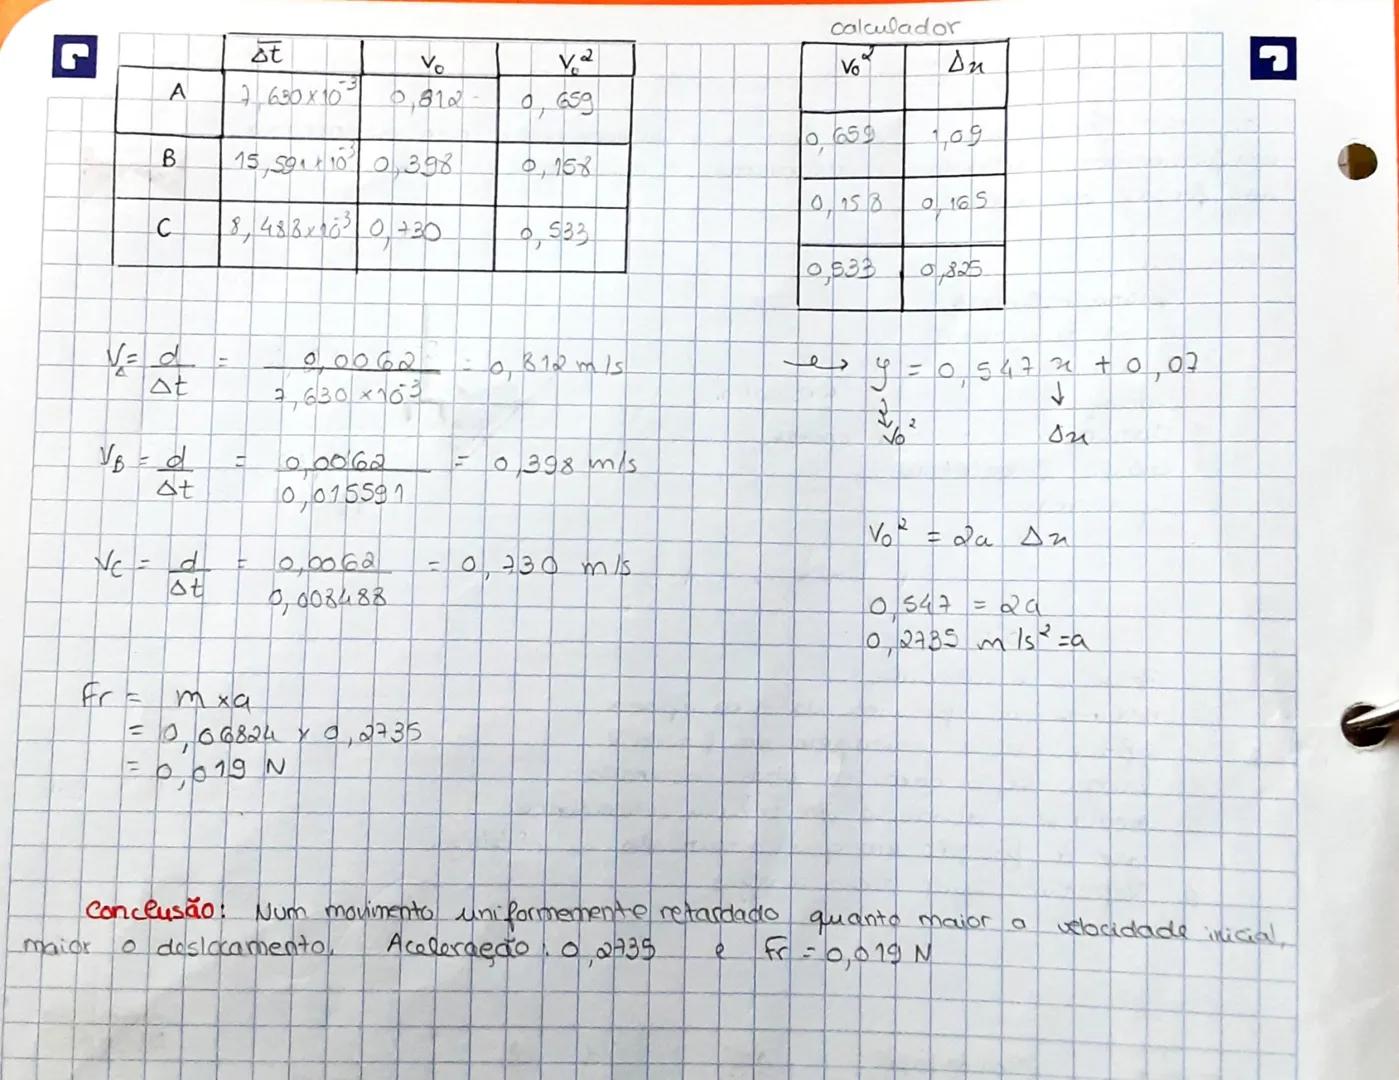 calculador
Δt V₀ V₀²
A 7,630×10⁻³ 0,812 0,659
B 15,591×10⁻³ 0,398 0,158
C 8,488×10⁻³ 0,730 0,533
V₀² Δx
0,659 1,09
0,158 0,165
0,533 0,825
V_A = d/Δt = 0,0062/7,630×10⁻³ = 0,812 m/s
V_B = d/Δt = 0,0062/0,015591 = 0,398 m/s
V_C = d/Δt = 0,0062/0,008488 = 0,730 m/s
Fr = m×a
= 0,06824 × 0,2735
= 0,019 N
→ y = 0,547 x + 0,07
↓ ↓
V₀² Δx
V₀² = 2a Δx
0,547 = 2a
0,2735 m/s² = a
Conclusão: Num movimento uniformemente retardado quanto maior a velocidade inicial,
maior o deslocamento. Aceleração: 0,2735 e Fr = 0,019 N